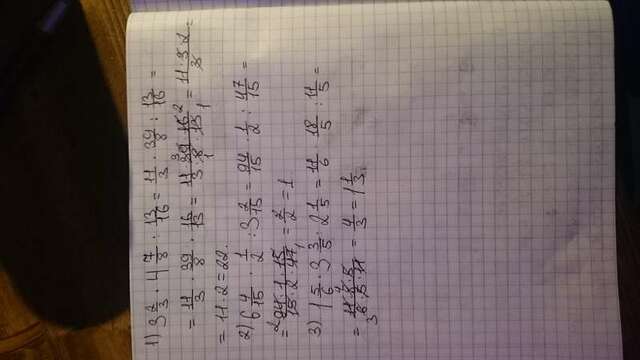 1) 3 2/3 · 4 7/8 · 13/16 = 11/3 · 39/8 : 13/16 =
= 11/3 · 39/8 · 16/13 = 11 · 39 · 16/3 · 8 · 13 = 11 · 3 · 2/3 =
= 11 · 2 = 22.
2) 6 4/15 · 1/2 : 3 2/15 = 94/15 · 1/2 : 47/15 =
= 94 · 1 · 15/15 · 2 · 47 = 2/2 = 1
3) 1 5/6 · 3 3/5 · 2 1/5 = 11/6 · 18/5 : 11/5 =
= 4/3 = 1 1/3.